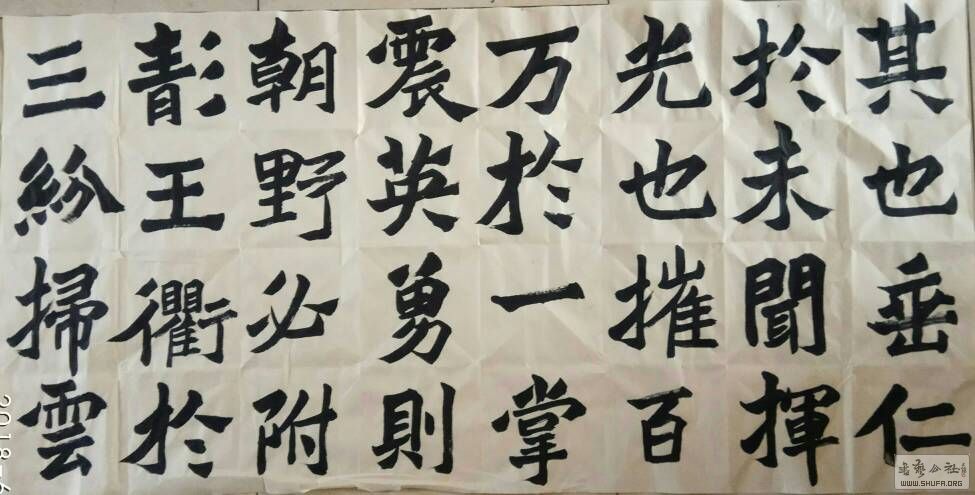 其也垂仁
於未聞揮
光也摧百
万於一掌
震英勇則
朝野必附
王衢於
三紛掃雲
2018-
书艺公社
WWW.SHUFA.ORG